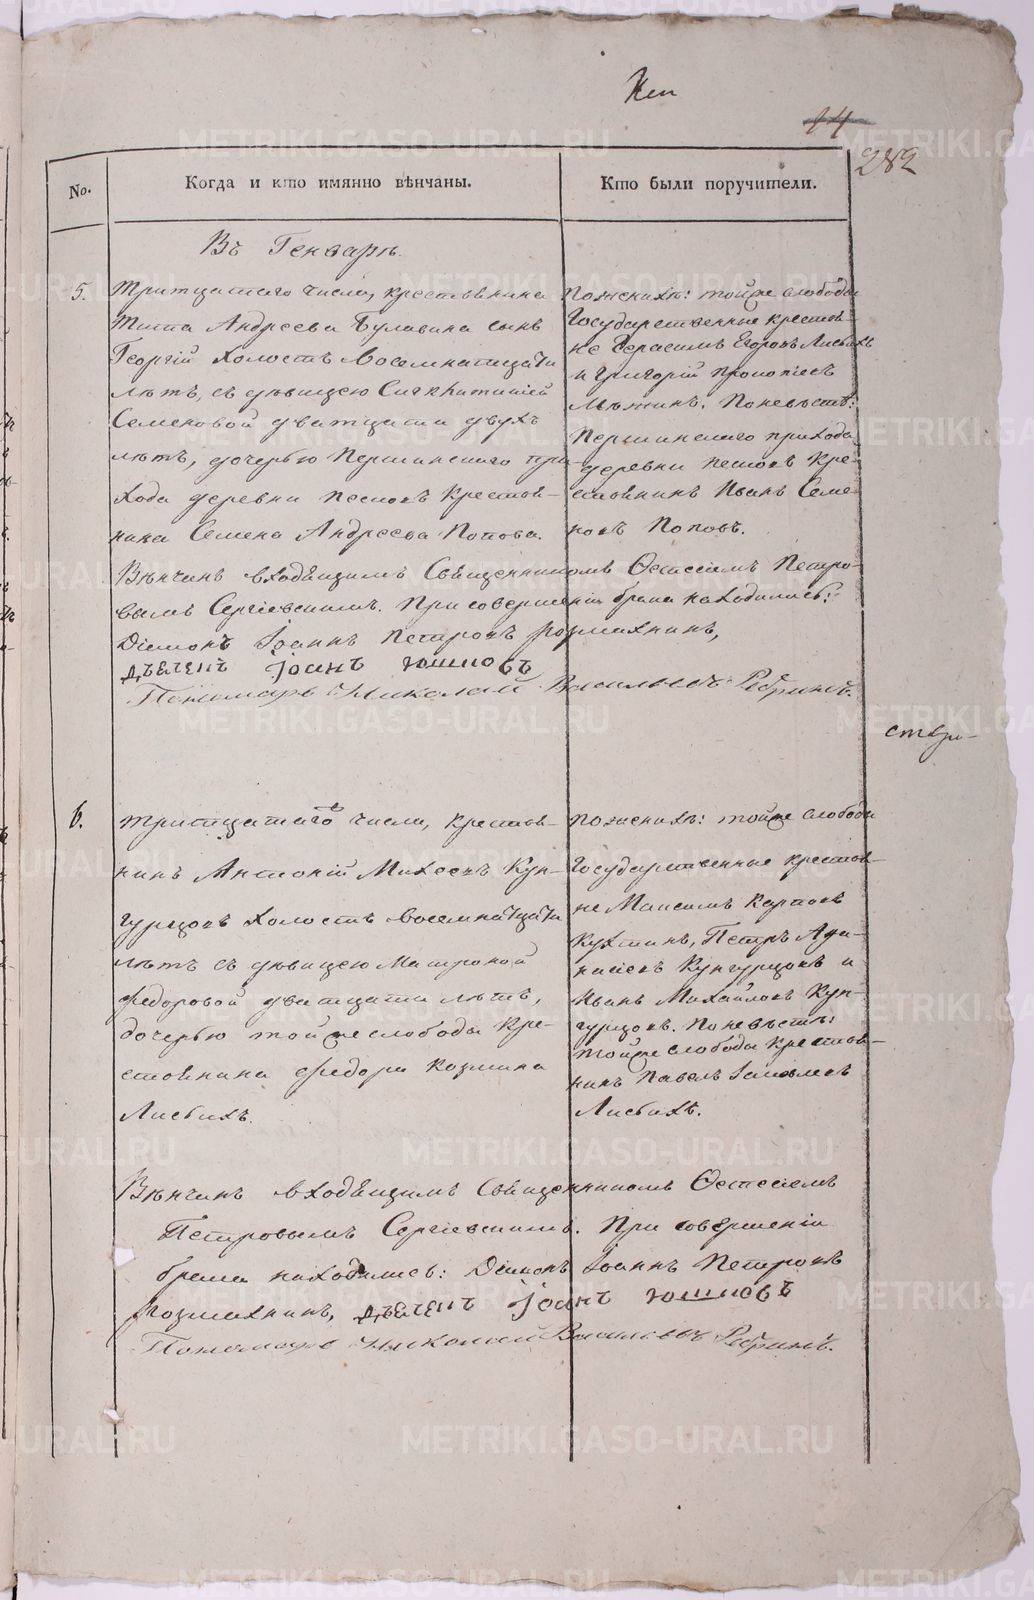 14
282
No.
Когда и кто имянно вѣнчаны.
Кто были поручители.
Въ Генварѣ.
5.
Тритцатаго числа, крестьянина
Тита Андреева Булавина сынъ
Георгій холостъ восемнатцати
лѣтъ, съ дѣвицею
Семеновой дватцати двухъ
лѣтъ, дочерью Першинскаго при-
хода деревни Песковъ крестья-
нина Семена Андреева Попова.
По женихѣ: той же слободы
Государственные крестья-
не Герасимъ Егоровъ Лисьихъ
и Григорій
По невѣстѣ:
Першинскаго прихода
деревни Песковъ кре-
стьянинъ Иванъ Семе-
новъ Поповъ.
Вѣнчанъ входящимъ Священникомъ Петро-
вымъ Сергіевскимъ. При совершеніи брака находились:
Діаконъ Іоаннъ Петровъ
Дьячекъ Іоанъ Юшковъ
Пономарь Николай Васильевъ
6.
Тритцатаго числа, крестья-
нинъ Антоній Михеевъ Кун-
гурцовъ холостъ восемнатцати
лѣтъ съ дѣвицею Матроной
Федоровой дватцати лѣтъ,
дочерью той же слободы кре-
стьянина Федора Козмина
Лисьихъ.
По женихѣ: той же слободы
Государственные крестья-
не Максимъ Карповъ
Кухтинъ, Петръ Афа-
насіевъ Кунгурцовъ и
Иванъ Михайловъ Кун-
гурцовъ. По невѣстѣ:
той же слободы крестья-
нинъ Павелъ
Лисьихъ.
Вѣнчанъ входящимъ Священникомъ
Петровымъ Сергіевскимъ. При совершеніи
брака находились: Діаконъ Іоаннъ Петровъ
Дьячекъ Іоанъ Юшковъ
Пономарь Николай Васильевъ
METRIKI.GASO-URAL.RU